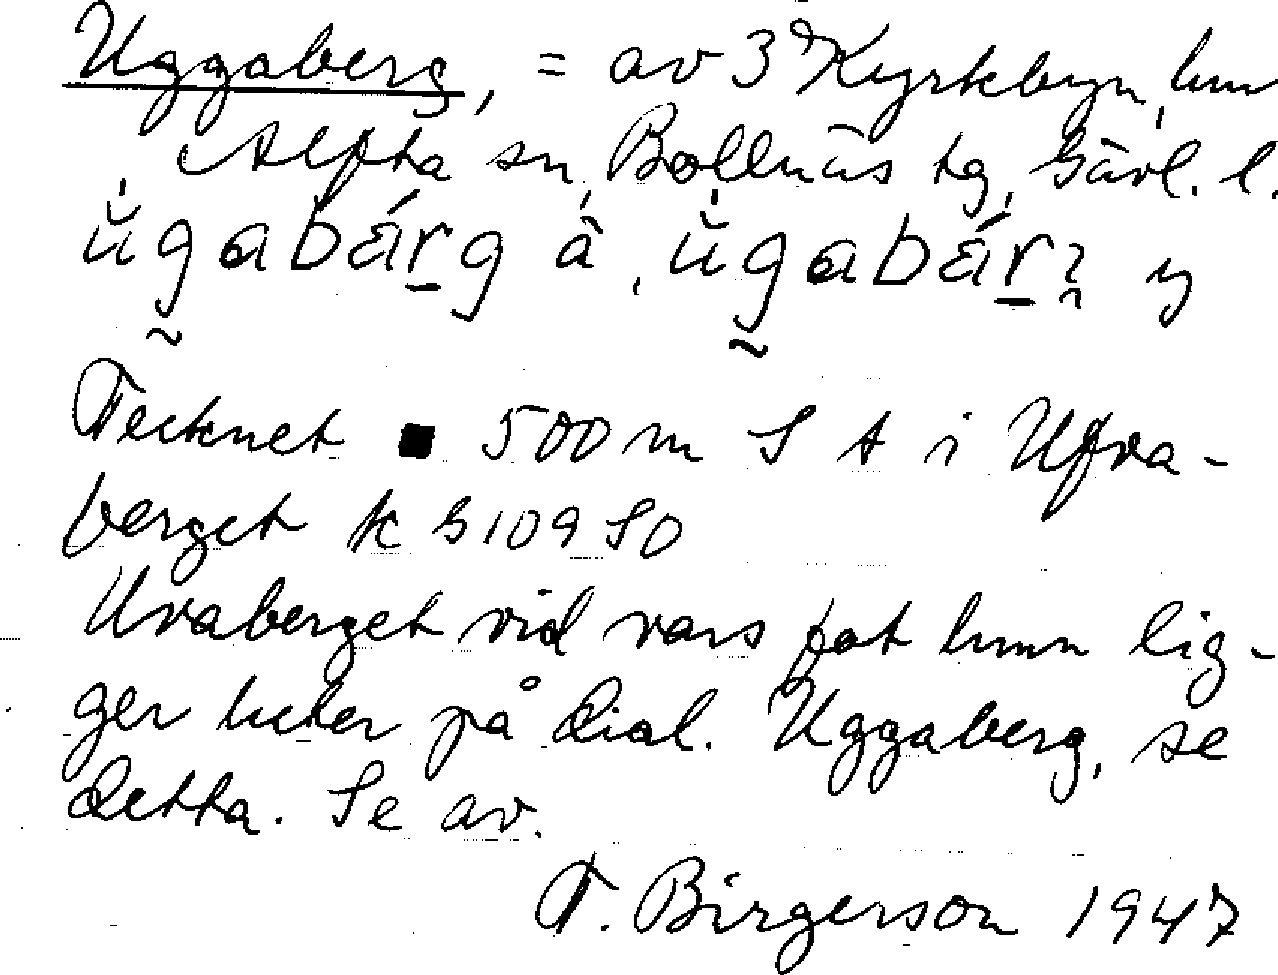 Uggaberg, = av 3 Kyrkbyn, hmn
Alfta sn, Bollnäs tg, Gävl. l.
ùgabárg à, ùgabár y
Tecknet ■ 500 m S t i Ufva-
berget k G 109 SO
Uvaberget vid vars fot hmn lig-
ger heter på dial. Uggaberg, se
detta. Se av.
T. Birgerson 1947